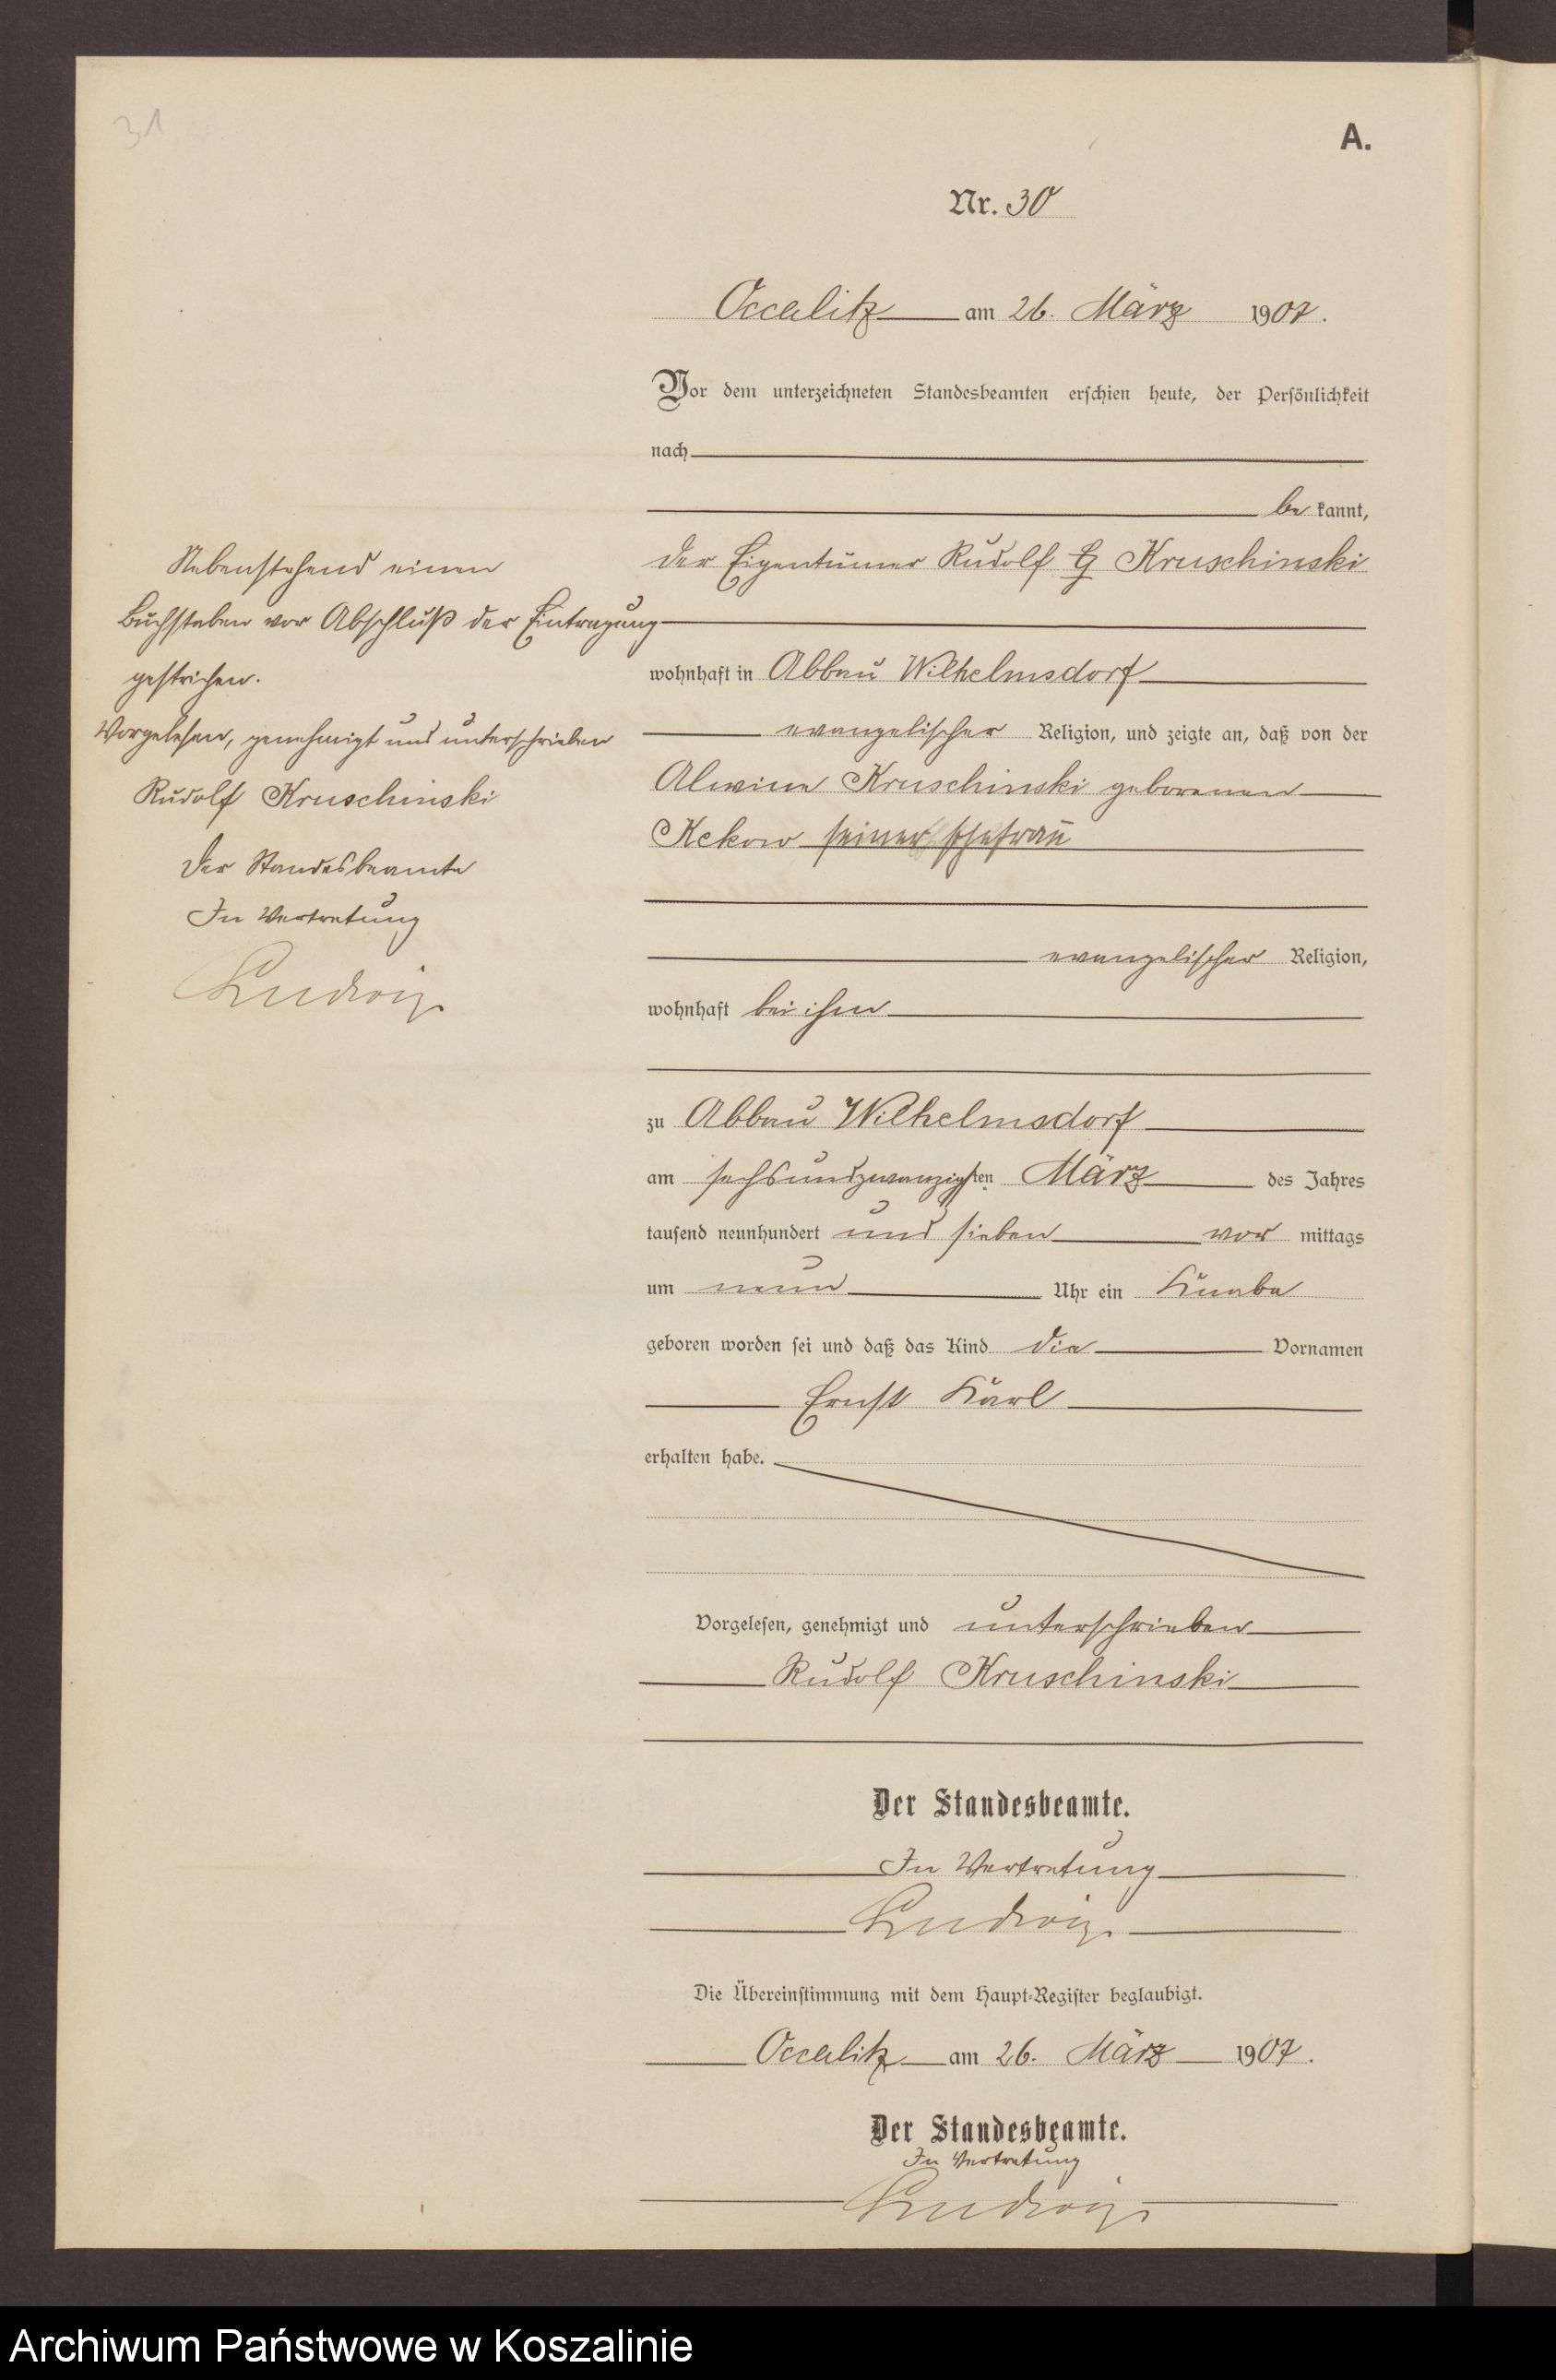 31
A.
Nr. 30
Occalitz am 26. März 1907.
Vor dem unterzeichneten Standesbeamten erschien heute, der Persönlichkeit
nach
be kannt,
der Eigentümer Rudolf G Kruschinski
wohnhaft in Abbau Wilhelmsdorf
evangelischer Religion, und zeigte an, daß von der
Alwine Kruschinski geborenen
Kekow seiner Ehefrau
evangelischer Religion,
wohnhaft bei ihm
zu Abbau Wilhelmsdorf
am sechsundzwanzigsten März des Jahres
tausend neunhundert und sieben vor mittags
um neun Uhr ein Knabe
geboren worden sei und daß das Kind die Vornamen
Ernst Karl
erhalten habe.
Vorgelesen, genehmigt und unterschrieben
Rudolf Kruschinski
Der Standesbeamte.
In Vertretung
Ludwig.
Die Übereinstimmung mit dem Haupt-Register beglaubigt.
Occalitz am 26. März 1907.
Der Standesbeamte.
In Vertretung
Ludwig.
Nebenstehend einen
Buchstaben vor Abschluß der Eintragung
gestrichen.
Vorgelesen, genehmigt und unterschrieben
Rudolf Kruschinski
Der Standesbeamte
In Vertretung
Ludwig.
Archiwum Państwowe w Koszalinie